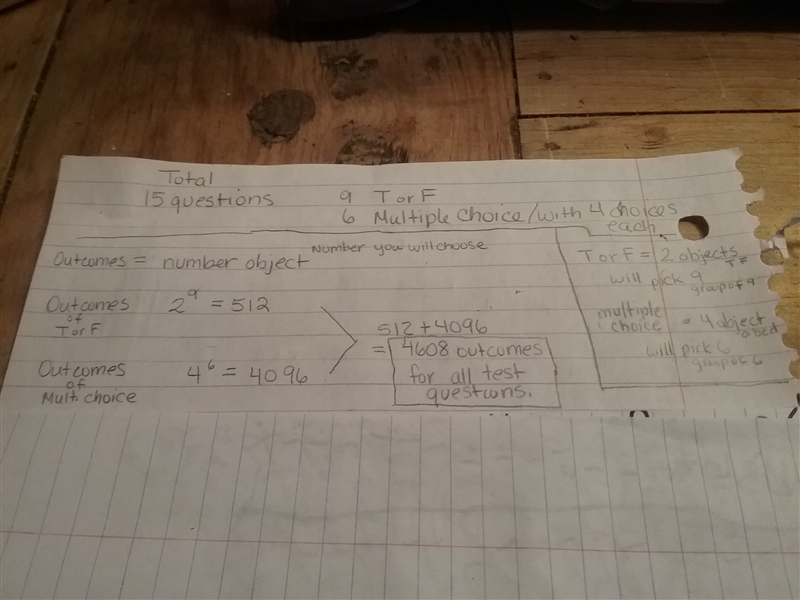 Total
15 questions
9 T or F
6 Multiple Choice/with 4 choices
each.
Number you will choose
Outcomes = number object
Outcomes
of
T or F
2^9 = 512
Outcomes
of
Mult. choice
4^6 = 4096
512 + 4096
= 4608 outcomes
for all test
questions.
T or F = 2 objects
TF
will pick 9
group of 9
multiple
choice = 4 object
abcd
will pick 6
group of 6